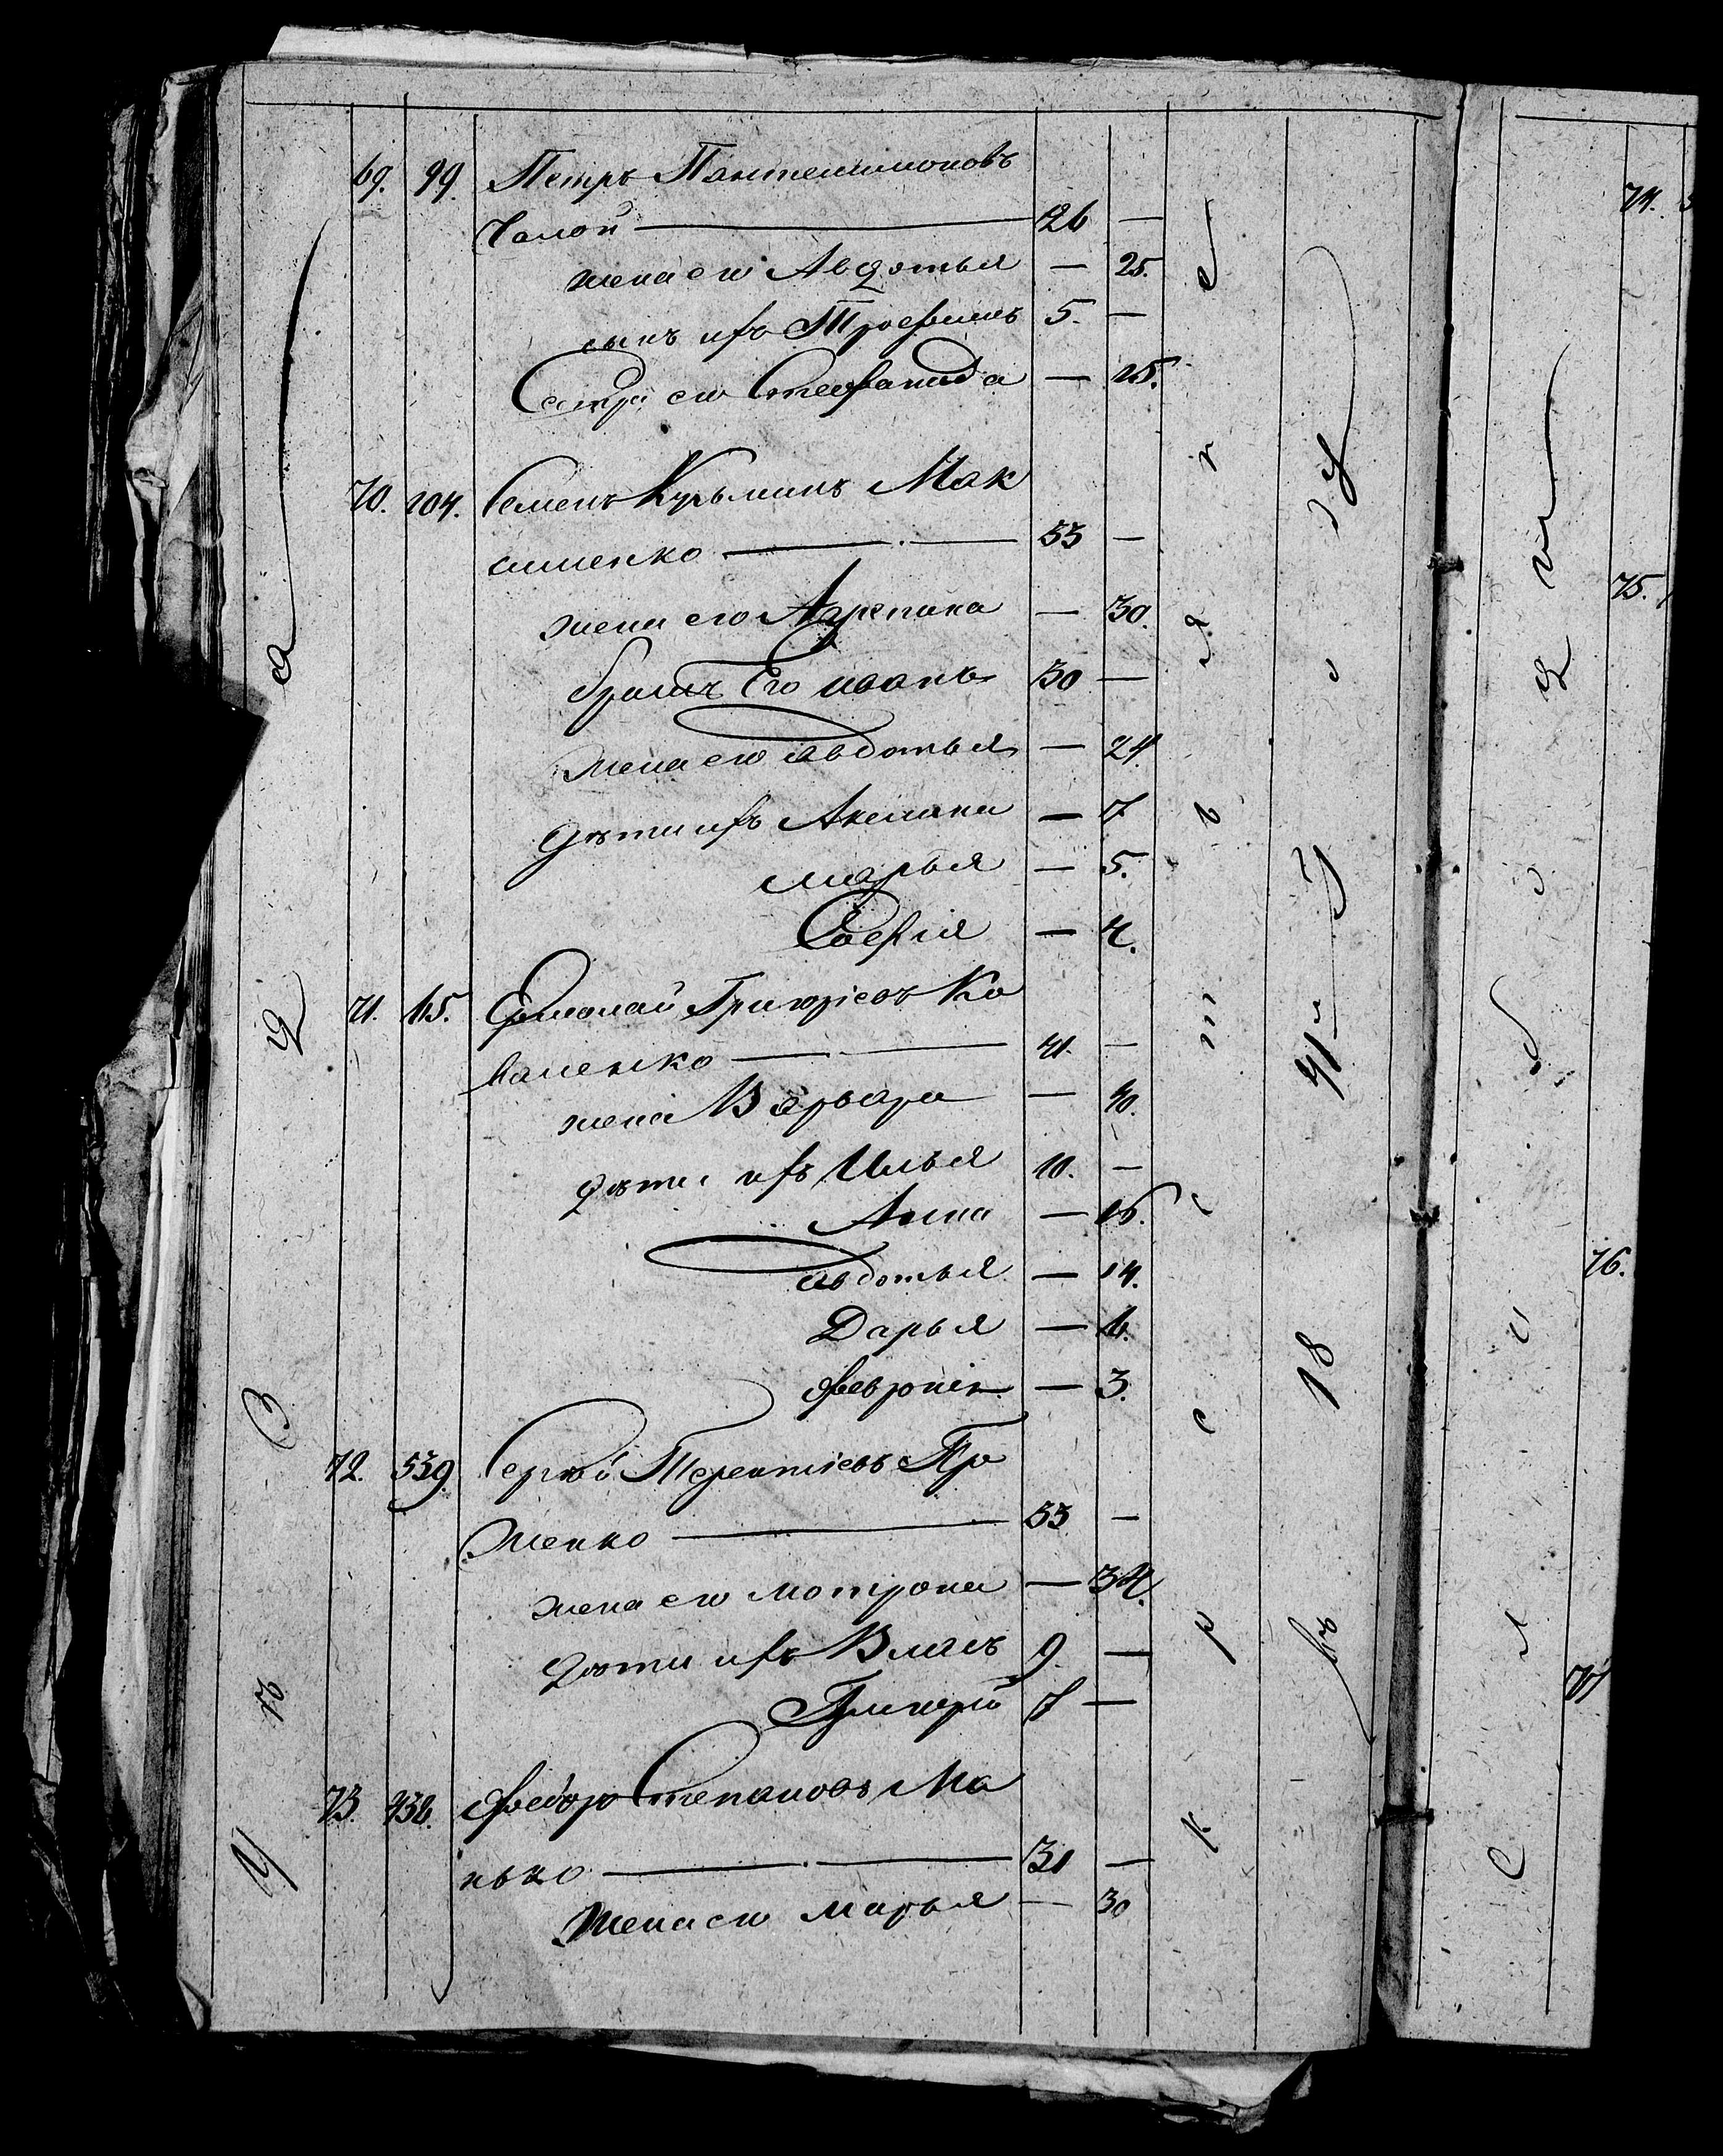 69. 99. Петръ Пантелимоновъ
Чалой — 26 —
жена его Авдотья — 25.
сынъ ихъ Трофимъ 5. —
Сестра его Стефанида — 25.
70. 104. Семенъ Кузьминъ Мак
сименко — 35 —
жена его Агрепина — 30.
братъ Его иванъ 30 —
жена его авдотья — 24
дѣти ихъ Акелина — 7
марья — 5.
Софія — 4.
71. 65. Ермолай Григорьевъ Ко
валенко — 41. —
жена Варвара — 40.
дѣти ихъ Илья 10. —
Анна — 16.
авдотья — 14.
Дарья — 6.
Февронія — 3.
72. 539. Сергѣй Терентіевъ Про
женко — 35 —
жена его мотрона — 34.
дѣти ихъ Власъ 9. —
Григорій 7 —
73. 438. Федоръ Степановъ Ма
нько — 31 —
Жена его марья — 30
крестьяне
въ 18 году
74.
75.
76.
77